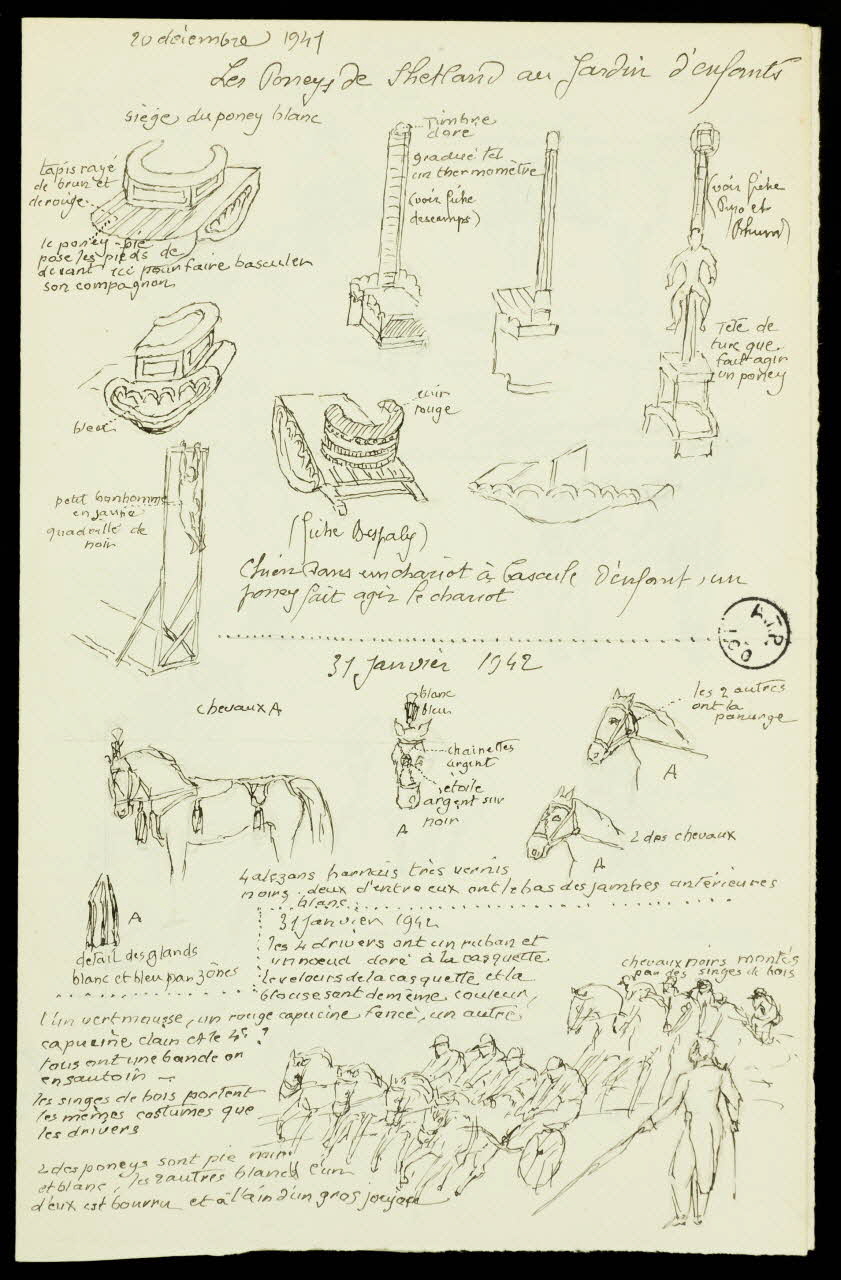 20 décembre 1941
Les Poneys de Shetland au Jardin d'enfants
siège du poney blanc
tapis rayé
de brun et
de rouge
le poney-pie
pose les pieds de
devant ici pour faire basculer
son compagnon
Timbre
doré
gradué tel
un thermomètre
(voir fiche
descamps)
(voir fiche
et
Rhum)
Tête de
turc que
fait agir
un poney
bleu
cuir
rouge
petit bonhomme
en jaune
quadrillé de
noir
(fiche Despaly)
Chien dans un chariot à bascule d'enfant, un
poney fait agir le chariot
A.T.P.
31 Janvier 1942
chevaux A
blanc
bleu
chainettes
argent
étoile
argent sur
noir
A
les 2 autres
ont la
panurge
A
2 des chevaux
A
4 alezans harnais très vernis
noirs. deux d'entre eux ont le bas des jambes antérieures
blanc
A
détail des glands
blanc et bleu par zônes
31 Janvier 1942
les 4 drivers ont un ruban et
un noeud doré à la casquette
le velours de la casquette et la
blouse sont de même couleur,
l'un vert mousse, un rouge capucine foncé, un autre
capucine clair et le 4e ?
tous ont une bande or
en sautoir —
les singes de bois portent
les mêmes costumes que
les drivers
chevaux noirs montés
par des singes de bois
2 des poneys sont pie noir
et blanc, les 2 autres blancs l'un
d'eux est bourru et a l'air d'un gros joujou